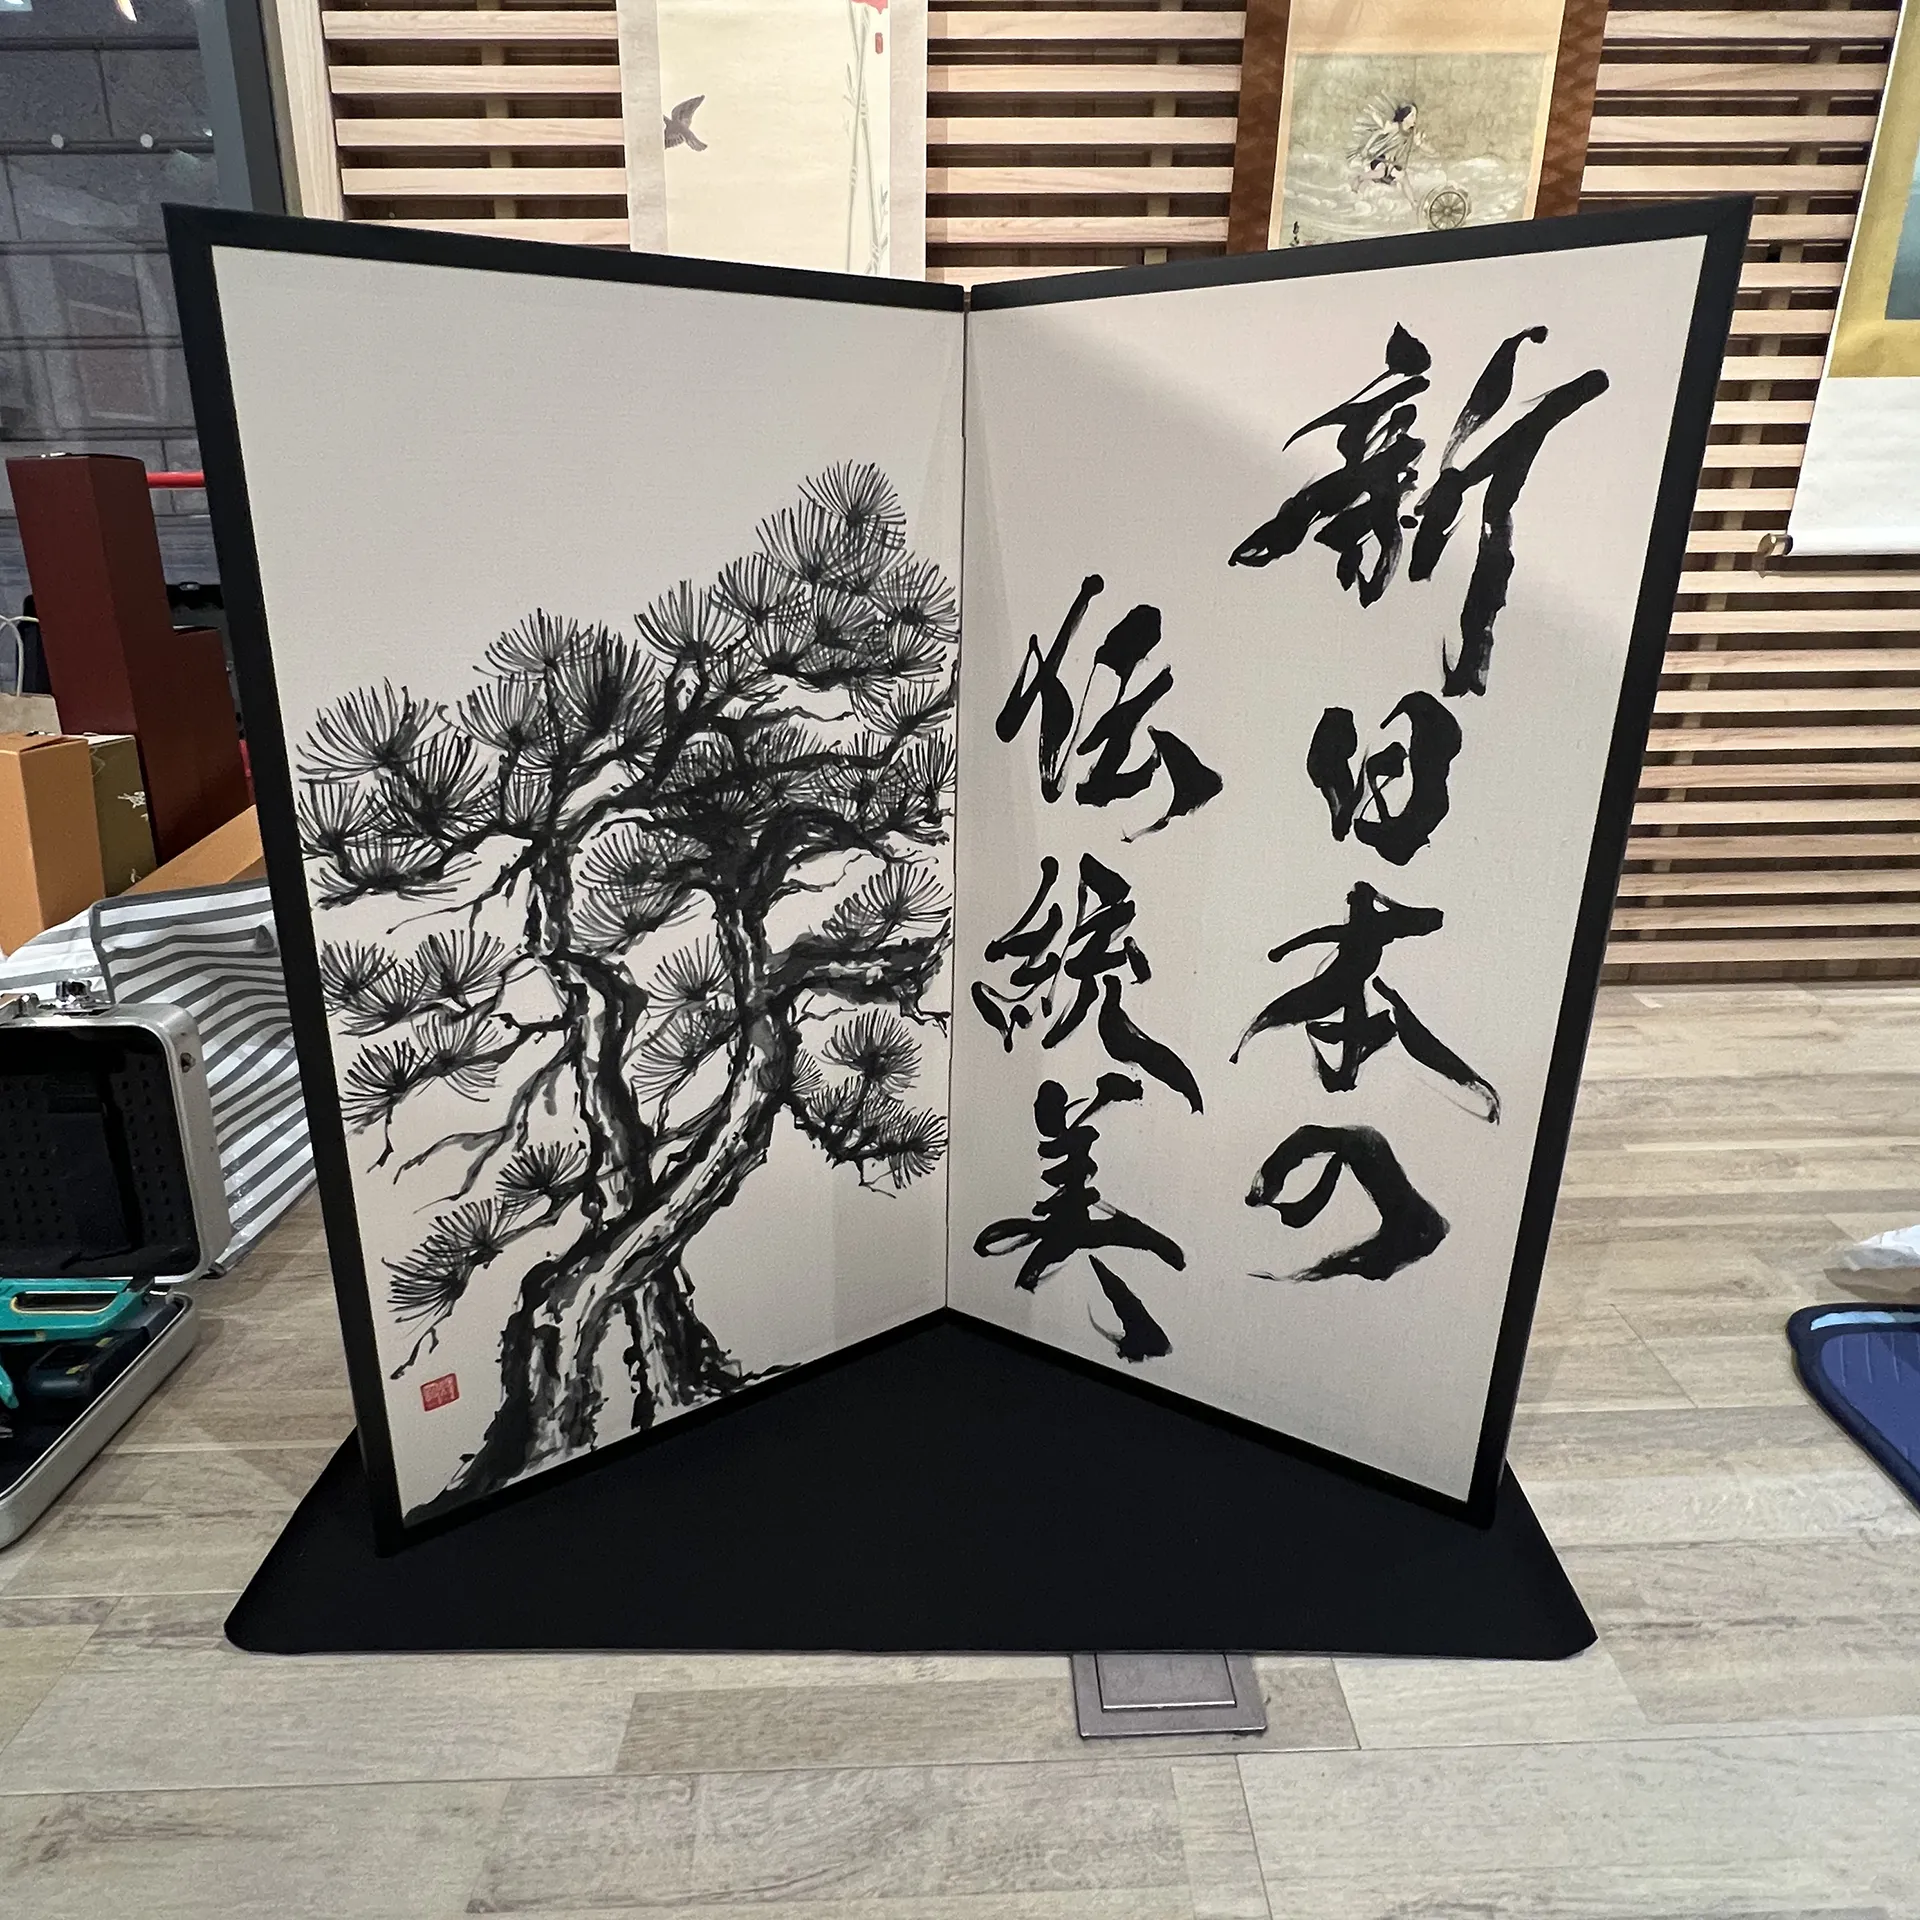 新日本の
伝統美